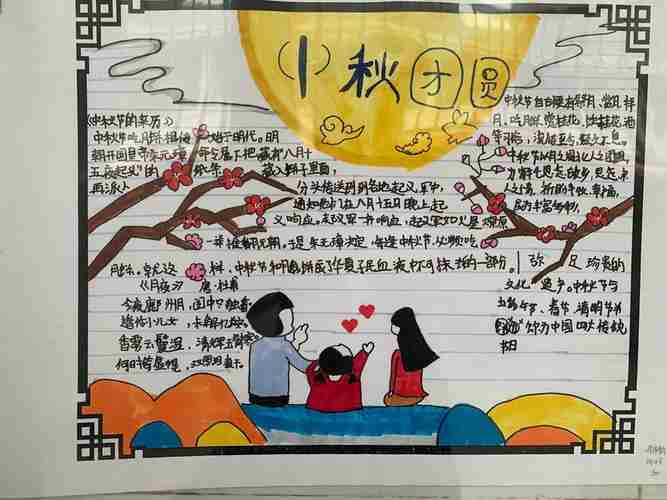 中秋团圆
《中秋节的来历》
中秋节吃月饼相传始于明代。明
朝开国皇帝朱元璋命令属下把藏有“八月十
五夜起义”的纸条藏入饼子里面,
再派人分头传送到各地起义军中,
通知他们在八月十五日晚上起
义响应。起义军一齐响应,起义军如星火燎原
一举推翻元朝。于是朱元璋决定,每逢中秋节,
月饼。就这样,中秋节和月饼
《月夜》 唐·杜甫
今夜鄜州月,闺中只独看。
遥怜小儿女,未解忆长安。
香雾云鬟湿,清辉玉臂寒。
何时倚虚幌,双照泪痕干。
中秋节自古便有祭月、赏月、拜
月、吃月饼、赏桂花、饮桂花酒
等习俗,流传至今,经久不息。
中秋节以月之圆兆人之团圆,
为寄托思念故乡,思念亲
人之情,祈盼丰收、幸福,
成为丰富多彩、
弥足珍贵的
文化遗产。中秋节与
端午节、春节、清明节并
称为中国四大传统
节日